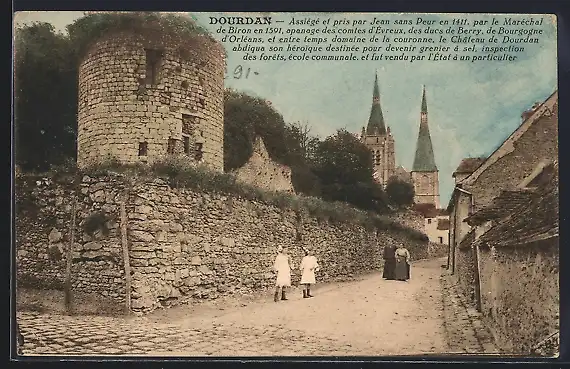 DOURDAN — Assiégé et pris par Jean sans Peur en 1411, par le Maréchal
de Biron en 1591, apanage des comtes d'Evreux, des ducs de Berry, de Bourgogne
d'Orléans, et entre temps domaine de la couronne, le Château de Dourdan
abdiqua son héroïque destinée pour devenir grenier à sel, inspection
des forêts, école communale, et fut vendu par l'État à un particulier
91